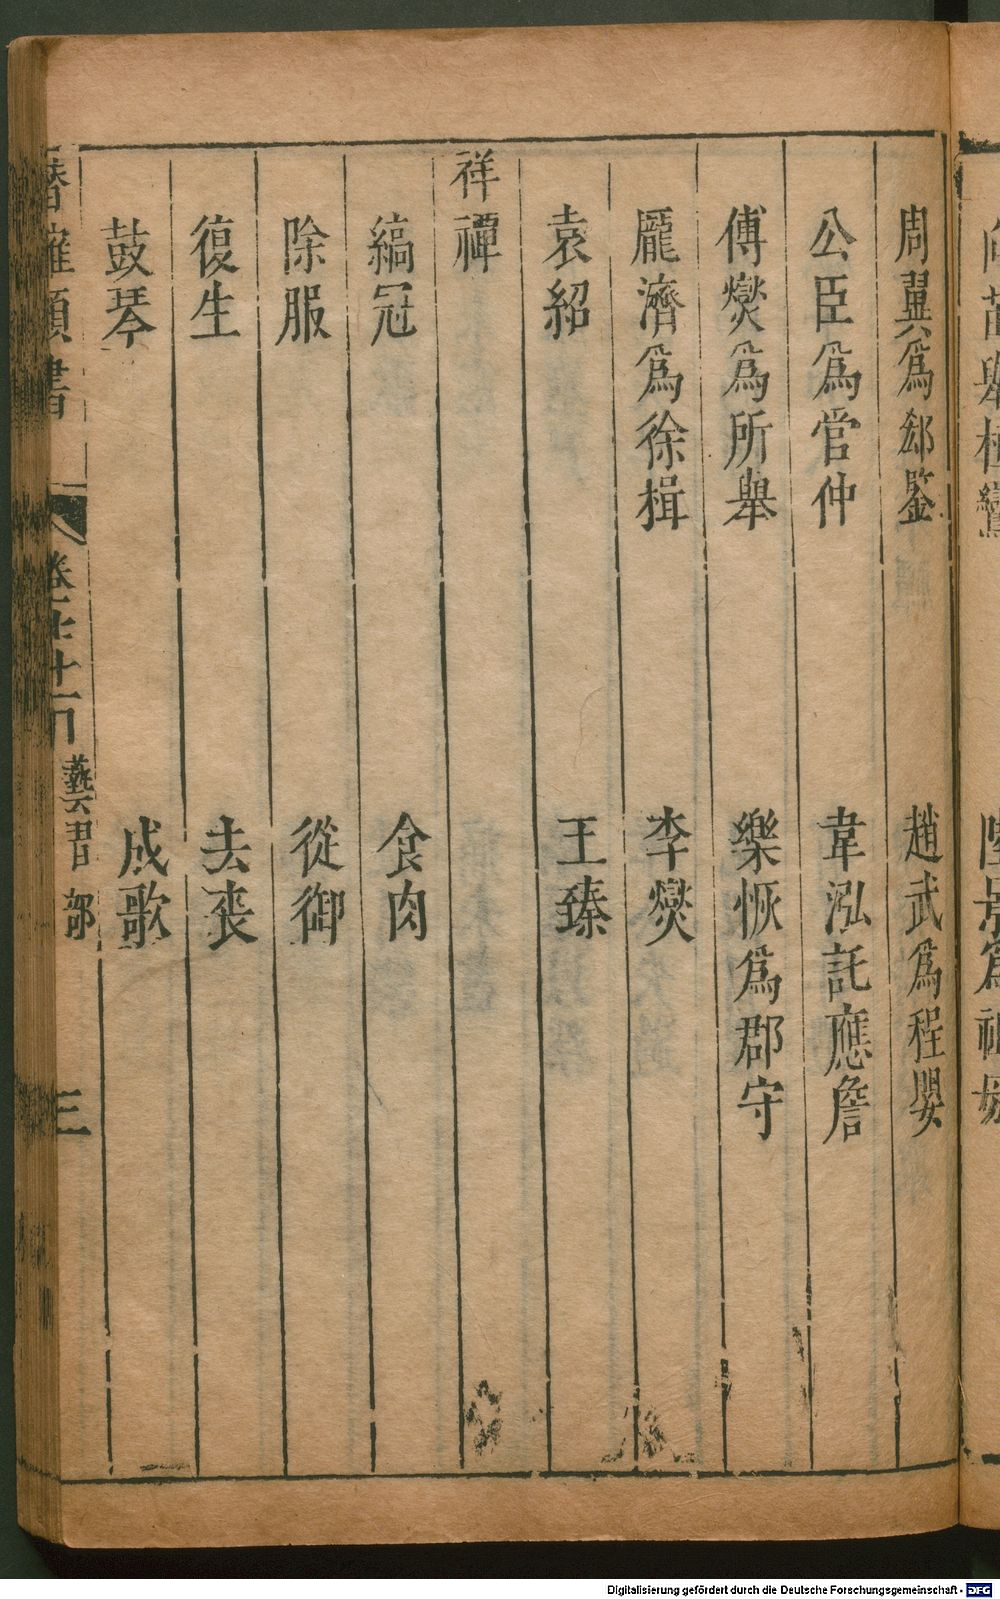 周翼爲郄鑒　趙武爲程嬰
公臣爲管仲　韋泓託應詹
傅燮爲所舉　樂恢爲郡守
龎濟爲徐揖　李燮
袁紹　王臻
祥禫
縞冠　食肉
除服　從御
復生　去喪
鼓琴　成歌
潛確類書　卷　藝習部　三
Digitalisierung gefördert durch die Deutsche Forschungsgemeinschaft - DFG